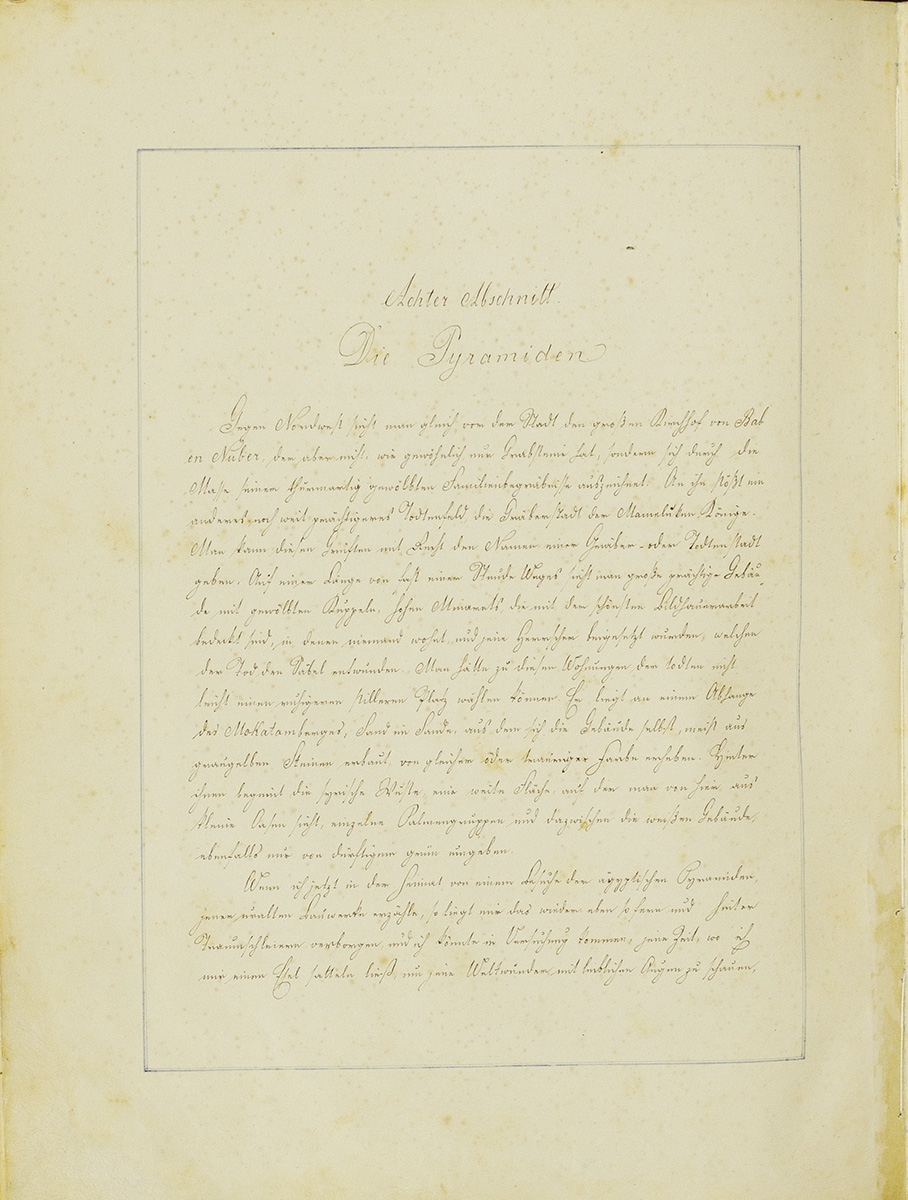 Achter Abschnitt.
Die Pyramiden
Gegen Nordwest sieht man gleich vor der Stadt den großen Kirchhof von Bab
en Nuber, der aber nicht, wie gewöhnlich nur Grabsteine hat, sondern sich durch die
Masse seiner thurmartig gewölbten Familienbegräbnisse auszeichnet. An ihn stößt ein
anderes noch weit prächtigeres Todtenfeld die Gräberstadt der Mameluken Könige.
Man kann diesen Grüften mit Recht den Namen einer Gräber- oder Todtenstadt
geben. Auf einer Länge von fast einer Stunde Weges sieht man große prächtige Gebäu-
de mit gewölbten Kuppeln, hohen Minarets die mit der schönsten Bildhauerarbeit
bedeckt sind, in denen niemand wohnt, und jene Herrscher beigesetzt wurden, welchen
der Tod den Säbel entwunden. Man hätte zu diesen Wohnungen der todten nicht
leicht einen ruhigeren stilleren Platz wählen können Er liegt an einem Abhange
des Mokatamberges, Sand im Sande, aus dem sich die Gebäude selbst, meist aus
graugelben Steinen erbaut, von gleicher öder trauriger Farbe erheben. Hinter
ihnen beginnt die syrische Wüste, eine weite Fläche, auf der man von hier aus
kleine Oasen sieht, einzelne Palmengruppen und dazwischen die weißen Gebäude,
ebenfalls nur von dürftigem grün umgeben.
Wenn ich jetzt in der Heimat von einem Besuche der ägyptischen Pyramiden,
jener uralten Bauwerke erzähle, so liegt mir das wieder eben so fern und hinter
Traumschleiern verborgen, und ich könnte in Versuchung kommen, jene Zeit, wo ich
mir einen Esel satteln ließ, um jene Weltwunder mit leiblichen Augen zu schauen,